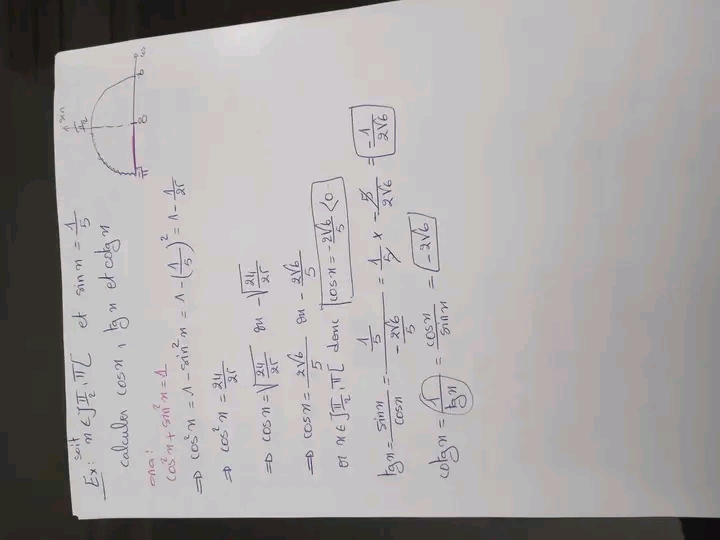 Ex: soit x ∈ ]π/2, π[ et sin x = 1/5
calculer cos x, tg x et cotg x
ona:
cos²x + sin²x = 1
⇒ cos²x = 1 - sin²x = 1 - (1/5)² = 1 - 1/25
⇒ cos²x = 24/25
⇒ cos x = √(24/25) ou -√(24/25)
⇒ cos x = 2√6/5 ou -2√6/5
or x ∈ ]π/2, π[ donc cos x = -2√6/5 < 0
tg x = sin x/cos x = (1/5)/(-2√6/5) = 1/5 × -5/2√6 = -1/2√6
cotg x = 1/tg x = cos x/sin x = -2√6
sin
π/2
π
0
0
cos